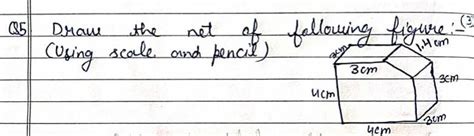 Q5 Draw the net of following figure:- (3
(Using scale and pencil)
3cm 1.4cm
3cm
3cm
4cm
3cm
4cm